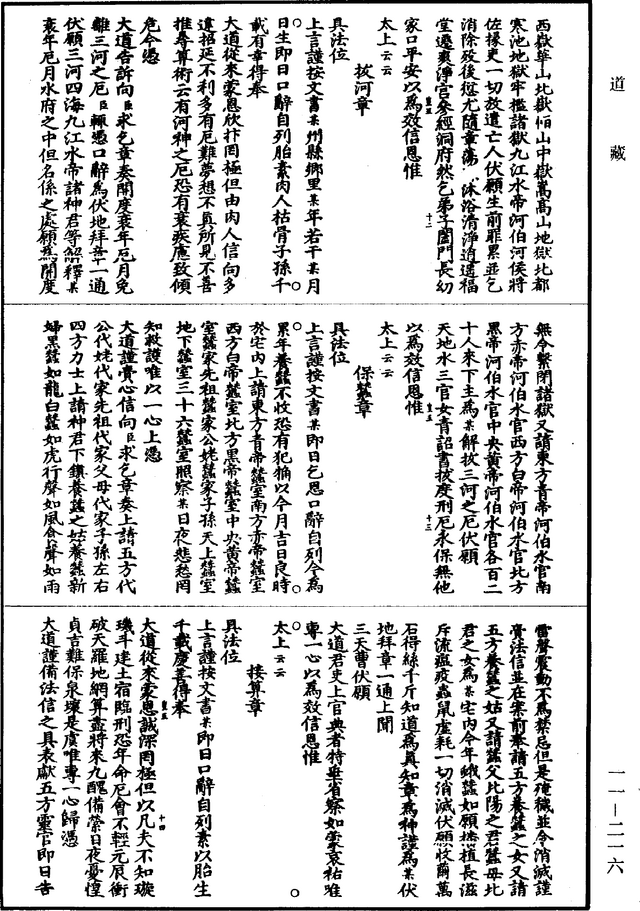 道藏
西嶽華山北嶽恒山中嶽嵩高山地獄北都
寒池地獄牢檻諸獄九江水帝河伯河侯將
佐掾吏一切放遣亡人伏願生前罪累並乞
消除歿後愆尤隨章蕩滌沐浴清淨逍遙福
堂遷爽淨官參經洞府然乞弟子闔門長幼
家口平安以為效信恩惟
太上云云
拔河章
具法位
上言謹按文書某州縣鄉里某年若干某月
日生即日口辭自列胎素肉人枯骨子孫千
載有幸得奉
大道從來蒙恩欣抃罔極但由肉人信向多
違招延不利多有厄難夢想不真所見不喜
推尋算術云有河神之厄恐有衰疾應致傾
危今憑
大道告訴向臣求乞章奏開度衰年厄月免
離三河之厄臣輒憑口辭為伏地拜章一通
伏願三河四海九江水帝諸神君等解釋某
衰年厄月水府之中但名係之處願為開度
無令繫閉諸獄又請東方青帝河伯水官南
方赤帝河伯水官西方白帝河伯水官北方
黑帝河伯水官中央黃帝河伯水官各百二
十人來下主為某解拔三河之厄伏願
天地水三官女青詔書拔度刑厄永保無他
以為效信恩惟
太上云云
保蠶章
具法位
上言謹按文書某即日乞恩口辭自列今為
累年養蠶不收恐有犯觸以今月吉日良時
於宅內上請東方青帝蠶室南方赤帝蠶室
西方白帝蠶室北方黑帝蠶室中央黃帝蠶
室蠶家先祖蠶家公姥蠶家子孫天上蠶室
地下蠶室三十六蠶室照察某日夜悲愁罔
知救護唯以一心上憑
大道謹齎心信向臣求乞章奏上請五方代
公代姥代家先祖代家父母代家子孫左右
四方力士上請神君下鎮養蠶之姑養蠶新
婦黑蠶如龍白蠶如虎行聲如風食聲如雨
雷聲震動不為禁忌但是殗穢並令消滅謹
齎法信並在案前奉請五方養蠶之女又請
五方養蠶之姑又請蠶父北陽之君蠶母北
君之女為某宅內今年蛾蠶如願播植長滋
斥流瘟疫蟲鼠虛耗一切消滅伏願收繭萬
石得絲千斤知道為真知章為神謹為某伏
地拜章一通上聞
三天曹伏願
大道君史上官典者特垂省察如蒙哀祐唯
專一心以為效信恩惟
太上云云
接算章
具法位
上言謹按文書某即日口辭自列素以胎生
千載慶幸得奉
大道從來蒙恩誠深罔極但以凡夫不知璇
璣斗建土宿臨刑恐年命厄會不輕元辰衝
破天羅地網算盡將來九醜備縈日夜憂惶
貞吉難保泉壤是虞唯專一心歸憑
大道謹備法信之具表獻五方靈官即日告
一一—二一六